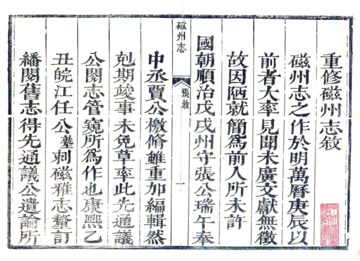 重修磁州志敘
磁州志之作於明萬曆庚辰以
前者大率見聞未廣文獻無徵
故因陋就簡爲前人所未許
國朝順治戊戌州守張公瑞午奉
磁州志
張敘
一
中丞賈公檄修雖重加編輯然
剋期竣事未免草率此先通議
公閱志管窺所爲作也康熙乙
丑皖江任公塾刺磁雅志釐訂
繙閱舊志得先通議公遺論所